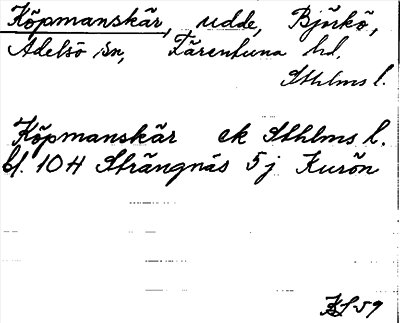 Köpmanskär, udde, Björkö,
Adelsö sn, Färentuna hd.
Sthlms l.
Köpmanskär ek Sthlms l.
bl. 10 H Strängnäs 5 j Kurön
59